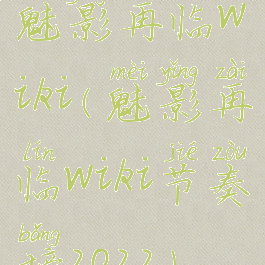 魅影再临w
iki(魅影再
mèi yǐng zài
临wiki节奏
lín jié zòu
榜2022)
bǎng